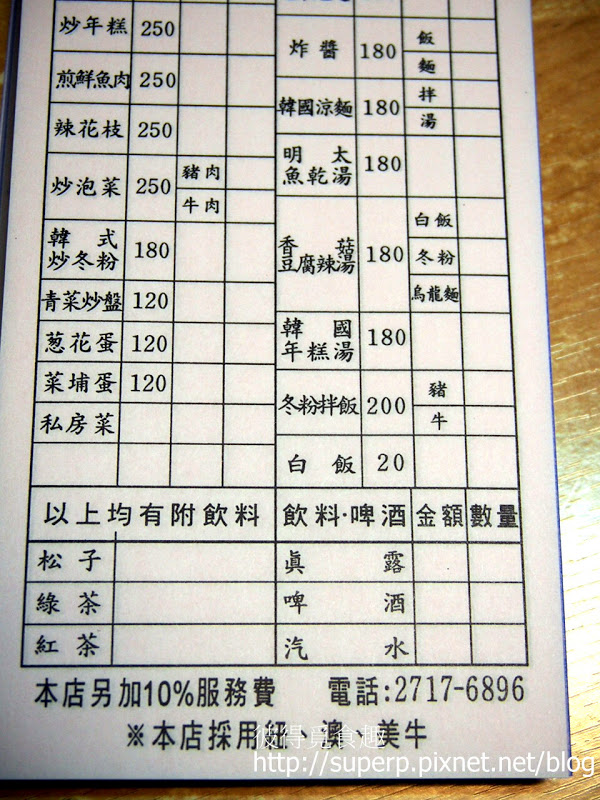 炒年糕 250
煎鮮魚肉 250
辣花枝 250
炒泡菜 250 豬肉
牛肉
韓式
炒冬粉 180
青菜炒盤 120
葱花蛋 120
菜埔蛋 120
私房菜
炸醬 180 飯
麵
韓國涼麵 180 拌
湯
明太
魚乾湯 180
香菇
豆腐辣湯 180 白飯
冬粉
烏龍麵
韓國
年糕湯 180
冬粉拌飯 200 豬
牛
白飯 20
以上均有附飲料
松子
綠茶
紅茶
飲料·啤酒 金額 數量
眞露
啤酒
汽水
本店另加10%服務費 電話:2717-6896
※本店採用紐、澳、美牛
彼得覓食趣
http://superp.pixnet.net/blog